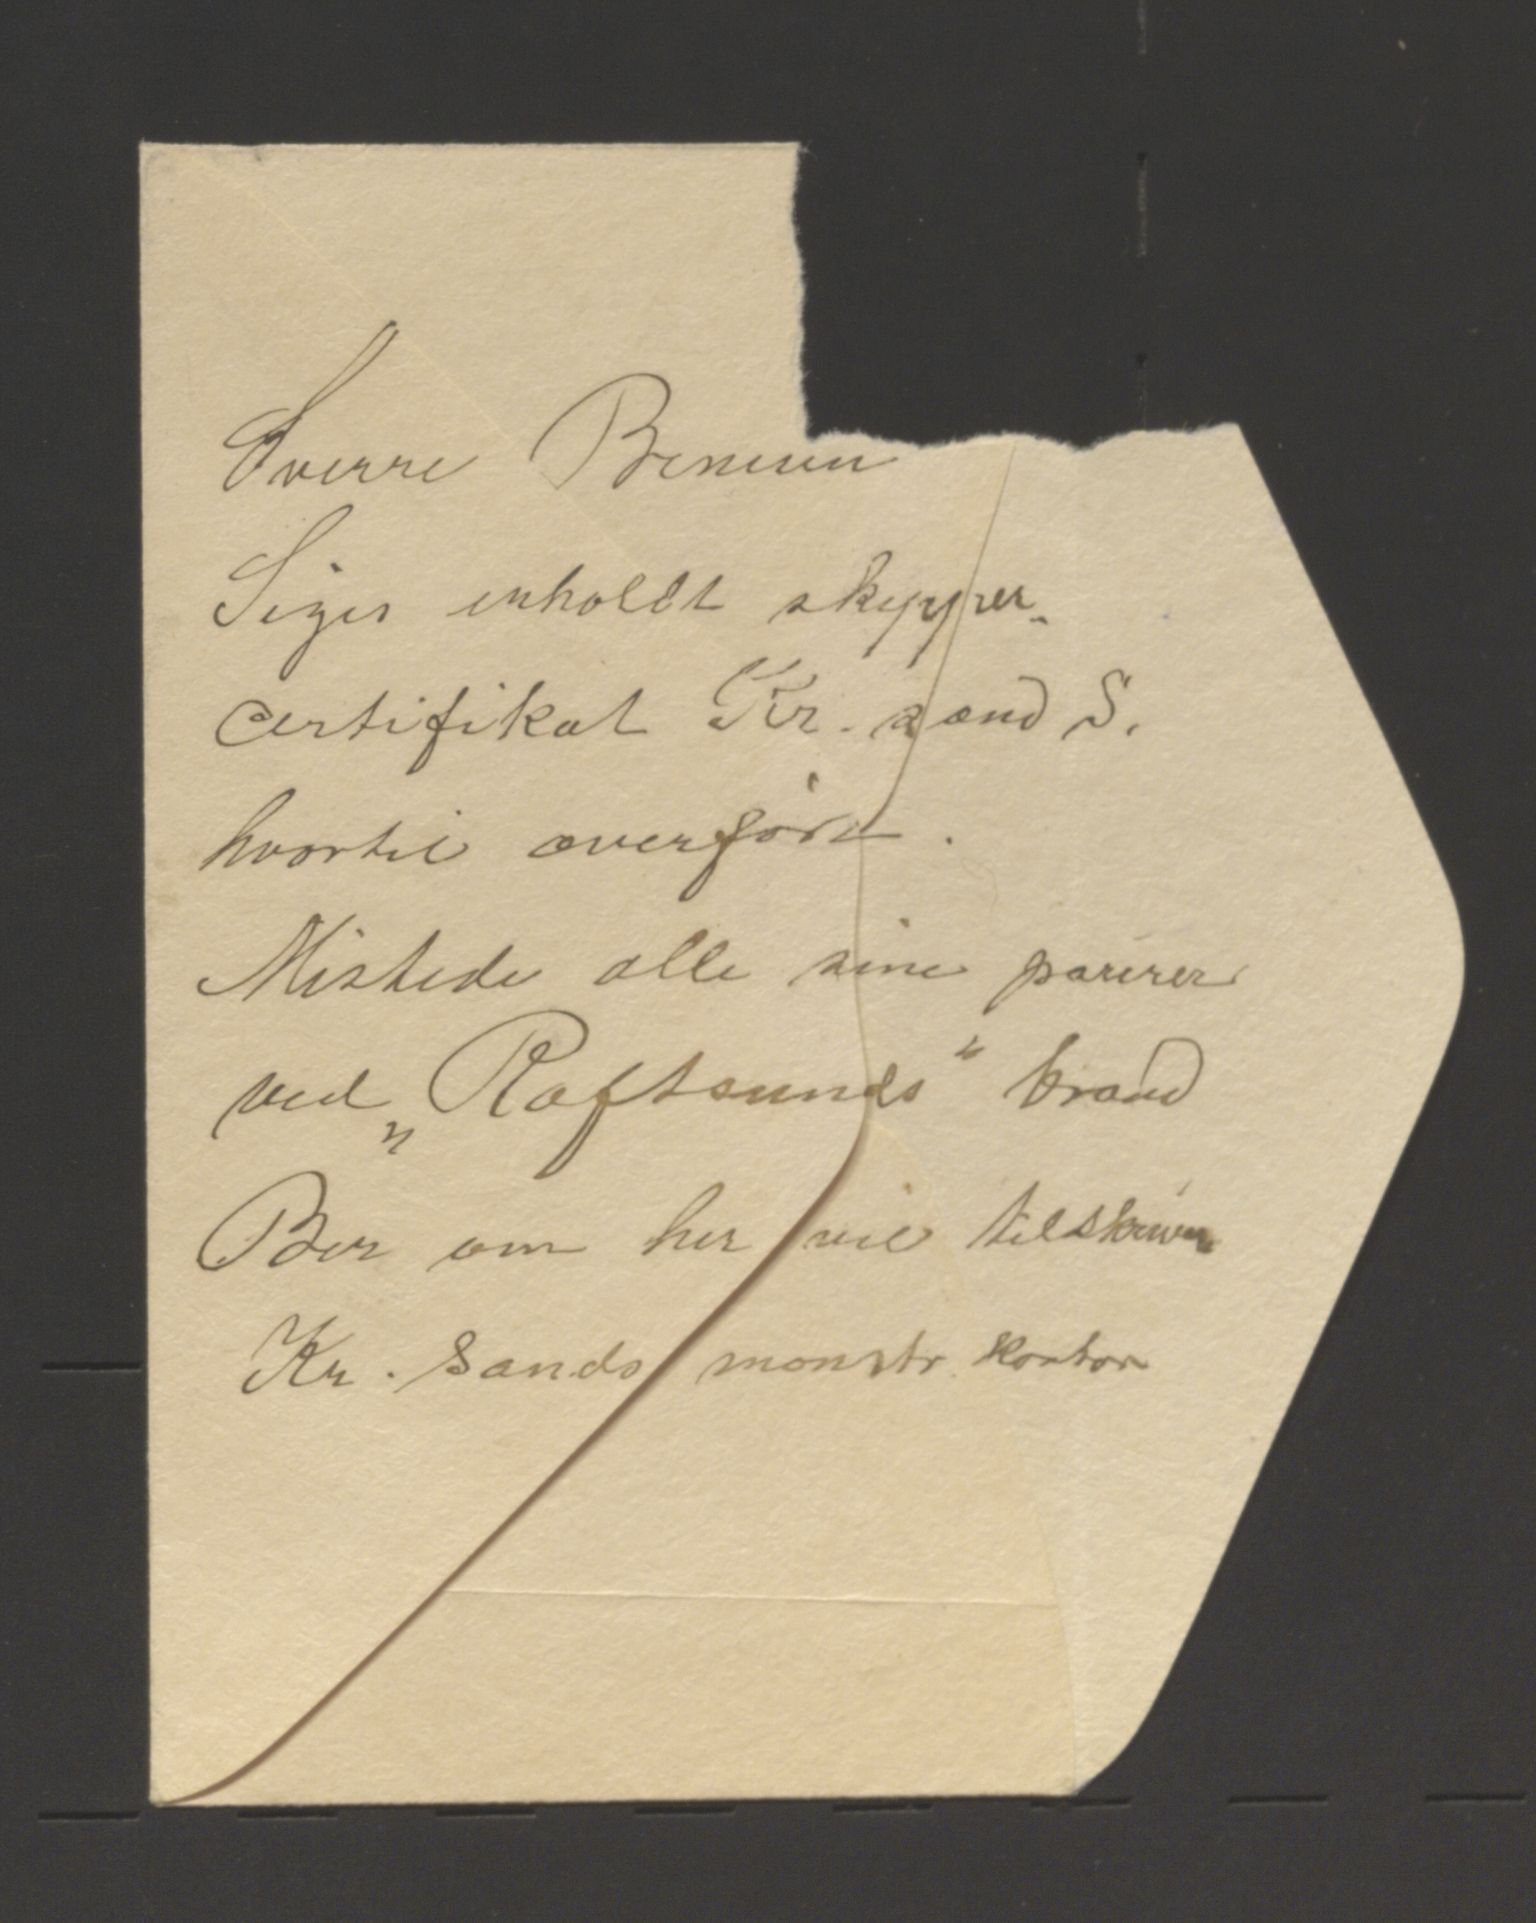 Sverre
Siger erholdt skypper-
certifikat Kr. sand S.
hvortil overført.
Mistede alle sine papirer
ved „Raftsunds" brand
Ber om her vil tilskrive
Kr. Sands mønstr. kontor